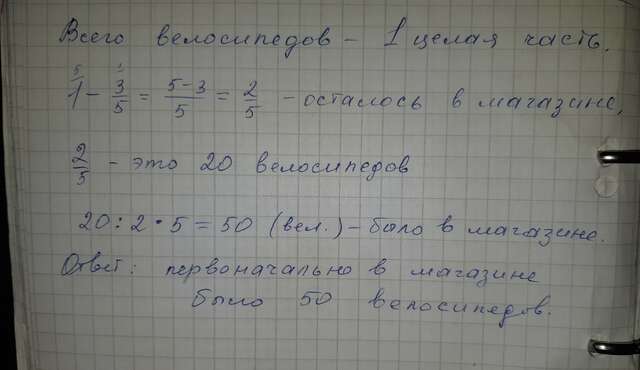 Всего велосипедов – 1 целая часть.
1 – 3/5 = 5-3/5 = 2/5 – осталось в магазине,
2/5 – это 20 велосипедов
20 : 2 • 5 = 50 (вел.) – было в магазине.
Ответ: первоначально в магазине
было 50 велосипедов.